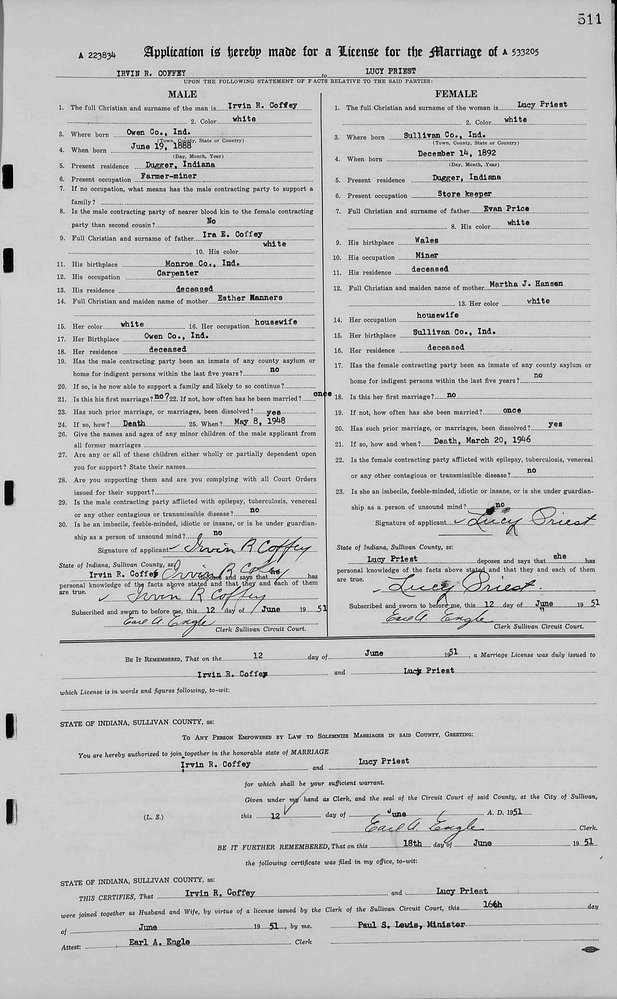 511
A 223834 Application is hereby made for a License for the Marriage of A 533205
IRVIN R. COFFEY to LUCY PRIEST
UPON THE FOLLOWING STATEMENT OF FACTS RELATIVE TO THE SAID PARTIES:
MALE
1. The full Christian and surname of the man is Irvin R. Coffey
2. Color white
3. Where born Owen Co., Ind.
(Town, County, State or Country)
4. When born June 19, 1888
(Day, Month, Year)
5. Present residence Dugger, Indiana
6. Present occupation Farmer-miner
7. If no occupation, what means has the male contracting party to support a
family?
8. Is the male contracting party of nearer blood kin to the female contracting
party than second cousin? No
9. Full Christian and surname of father Ira E. Coffey
10. His color white
11. His birthplace Monroe Co., Ind.
12. His occupation Carpenter
13. His residence deceased
14. Full Christian and maiden name of mother Esther Manners
15. Her color white 16. Her occupation housewife
17. Her Birthplace Owen Co., Ind.
18. Her residence deceased
19. Has the male contracting party been an inmate of any county asylum or
home for indigent persons within the last five years? no
20. If so, is he now able to support a family and likely to so continue?
21. Is this his first marriage? no 22. If not, how often has he been married? once
23. Has such prior marriage, or marriages, been dissolved? yes
24. If so, how? Death 25. When? May 8, 1948
26. Give the names and ages of any minor children of the male applicant from
all former marriages
27. Are any or all of these children either wholly or partially dependent upon
you for support? State their names
28. Are you supporting them and are you complying with all Court Orders
issued for their support?
29. Is the male contracting party afflicted with epilepsy, tuberculosis, venereal
or any other contagious or transmissible disease? no
30. Is he an imbecile, feeble-minded, idiotic or insane, or is he under guardian-
ship as a person of unsound mind? no
Signature of applicant Irvin R Coffey
State of Indiana, Sullivan County, ss:
Irvin R. Coffey Irvin R Coffey deposes and says that he has
personal knowledge of the facts above stated and that they and each of them
are true. Irvin R Coffey
Subscribed and sworn to before me, this 12 day of June 19 51
Earl A. Engle
Clerk Sullivan Circuit Court.
FEMALE
1. The full Christian and surname of the woman is Lucy Priest
2. Color white
3. Where born Sullivan Co., Ind.
(Town, County, State or Country)
4. When born December 14, 1892
(Day, Month, Year)
5. Present residence Dugger, Indiana
6. Present occupation Store keeper
7. Full Christian and surname of father Evan Price
8. His color white
9. His birthplace Wales
10. His occupation Miner
11. His residence deceased
12. Full Christian and maiden name of mother Martha J. Hansen
13. Her color white
14. Her occupation housewife
15. Her birthplace Sullivan Co., Ind.
16. Her residence deceased
17. Has the female contracting party been an inmate of any county asylum or
home for indigent persons within the last five years? no
18. Is this her first marriage? no
19. If not, how often has she been married? once
20. Has such prior marriage, or marriages, been dissolved? yes
21. If so, how and when? Death, March 20, 1946
22. Is the female contracting party afflicted with epilepsy, tuberculosis, venereal
or any other contagious or transmissible disease? no
23. Is she an imbecile, feeble-minded, idiotic or insane, or is she under guardian-
ship as a person of unsound mind? no
Signature of applicant Lucy Priest
State of Indiana, Sullivan County, ss:
Lucy Priest deposes and says that she has
personal knowledge of the facts above stated and that they and each of them
are true. Lucy Priest.
Subscribed and sworn to before me, this 12 day of June 19 51
Earl A. Engle
Clerk Sullivan Circuit Court.
BE IT REMEMBERED, That on the 12 day of June 1951, a Marriage License was duly issued to
Irvin R. Coffey and Lucy Priest
which License is in words and figures following, to-wit:
STATE OF INDIANA, SULLIVAN COUNTY, ss:
TO ANY PERSON EMPOWERED BY LAW TO SOLEMNIZE MARRIAGES IN SAID COUNTY, GREETING:
You are hereby authorized to join together in the honorable state of MARRIAGE
Irvin R. Coffey and Lucy Priest
for which shall be your sufficient warrant.
Given under my hand as Clerk, and the seal of the Circuit Court of said County, at the City of Sullivan,
(L. S.) this 12 day of June A. D. 1951
Earl A. Engle Clerk.
BE IT FURTHER REMEMBERED, That on this 18th day of June 19 51
the following certificate was filed in my office, to-wit:
STATE OF INDIANA, SULLIVAN COUNTY, ss:
THIS CERTIFIES, That Irvin R. Coffey and Lucy Priest
were joined together as Husband and Wife, by virtue of a license issued by the Clerk of the Sullivan Circuit Court, this 16th day
of June 19 51, by me. Paul S. Lewis, Minister
Attest: Earl A. Engle Clerk